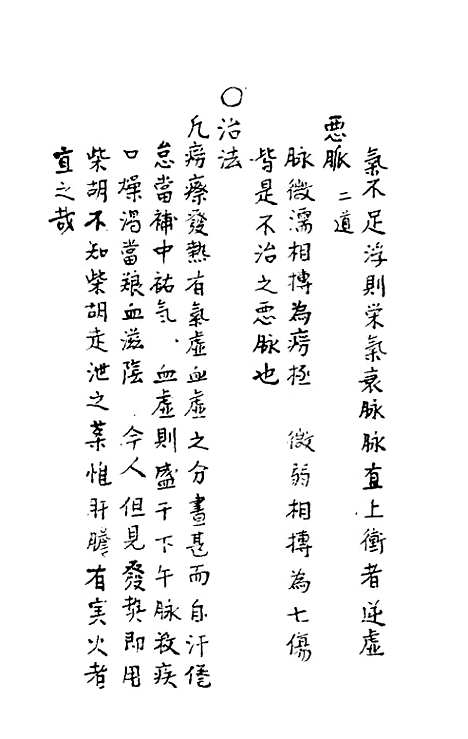 氣不足浮則栄氣衰脉脉直上衝者逆虛
惡脈 二道
脉微濡相搏為癆極 微弱相搏為七傷
皆是不治之惡脉也
○治法
凢癆瘵發熱有氣虛血虛之分晝甚而自汗倦
怠當補中祐气、血虛則盛于下午脉数疾
口燥渴當粮血滋陰 今人但見發熱即用
柴胡不知柴胡走泄之藥惟肝膽有実火者
宜之哉